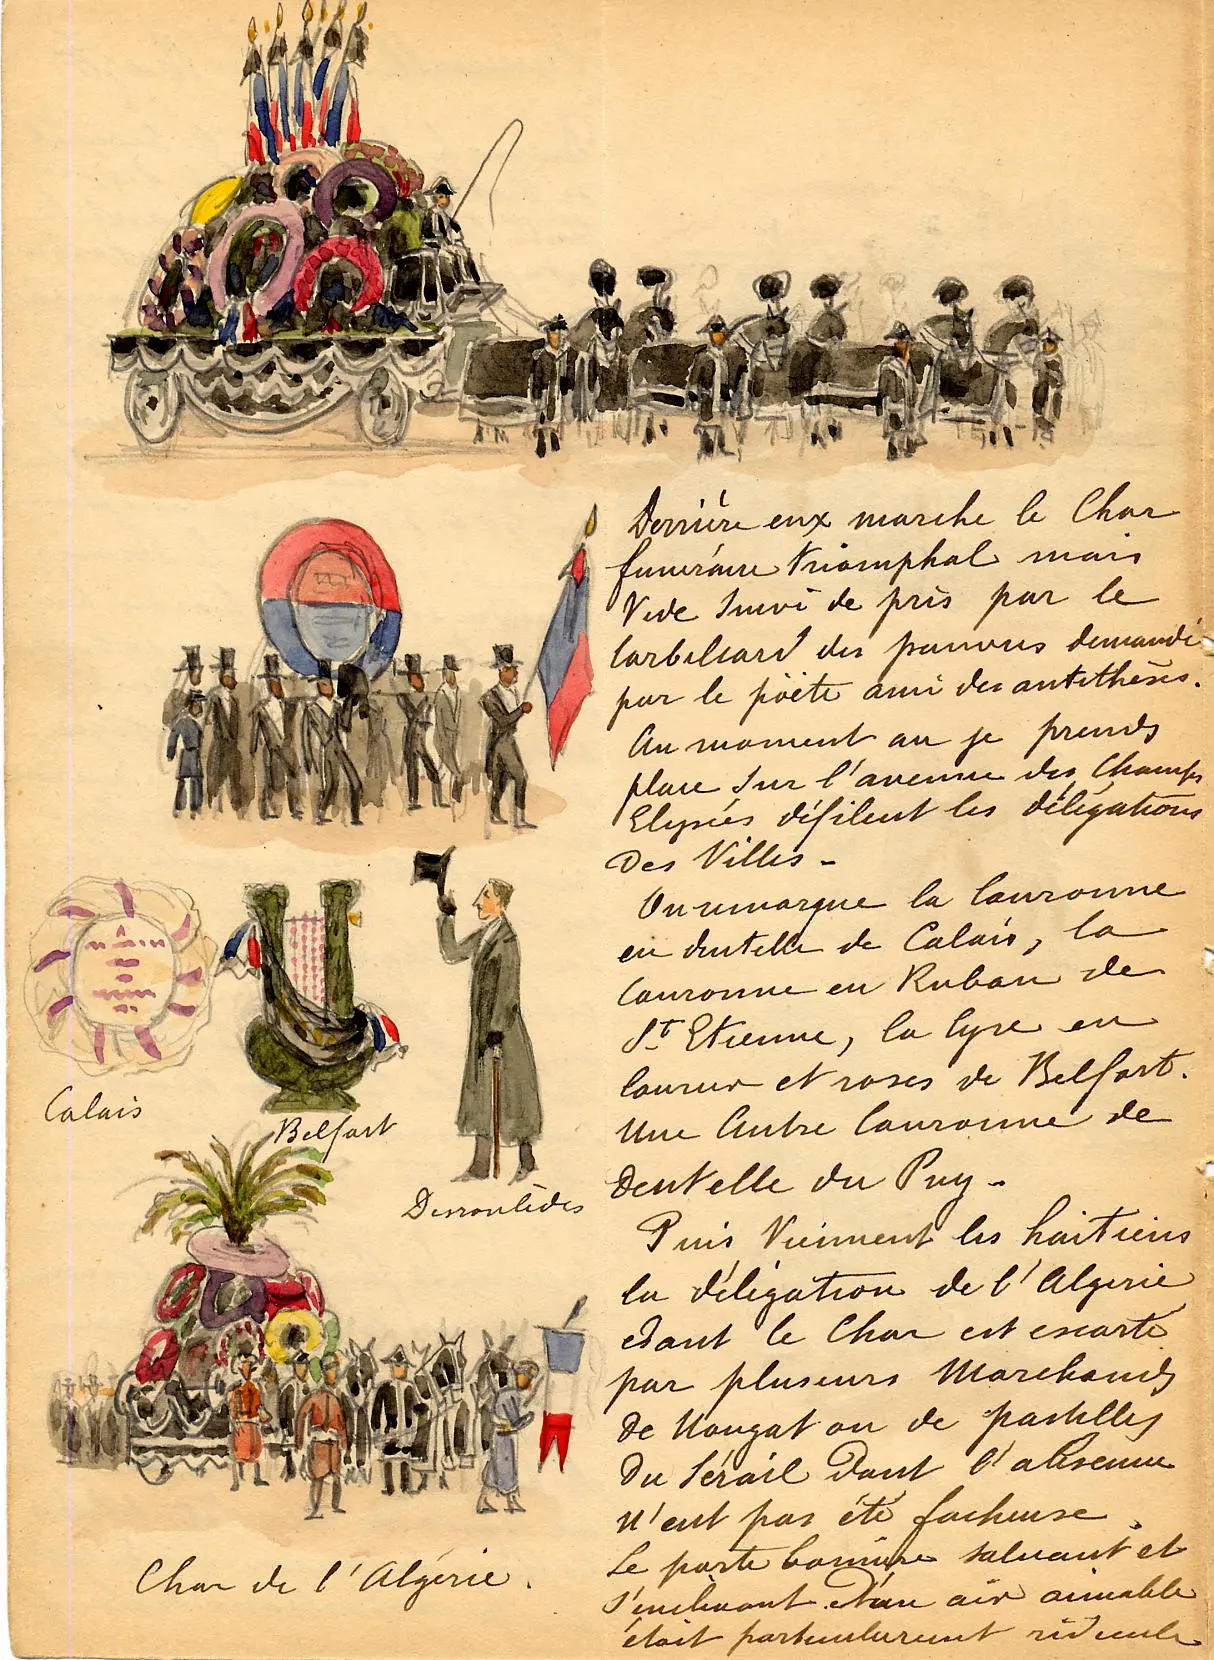 Derrière eux marche le Char
funéraire triomphal mais
Vide suivi de près par le
Corbillard des pauvres demandé
par le poëte ami des antithèses.
Au moment ou je prends
place sur l'avenue des Champs
Elysées défilent les délégations
Des Villes -
On remarque la Couronne
en dentelle de Calais, la
Couronne en Ruban de
St Etienne, la lyre en
laurier et roses de Belfort.
Une Autre Couronne de
Dentelle du Puy -
Puis Viennent les haïtiens
la délégation de l'Algerie
dont le Char est escorté
par plusieurs Marchands
de Nougat ou de pastilles
du Sérail Dont l'absence
n'eut pas été facheuse.
Le porte bannière saluant et
s'inclinant d'un air aimable
était particulièrement ridicule
Calais
Belfort
Derroulèdes
Char de l'Algérie.